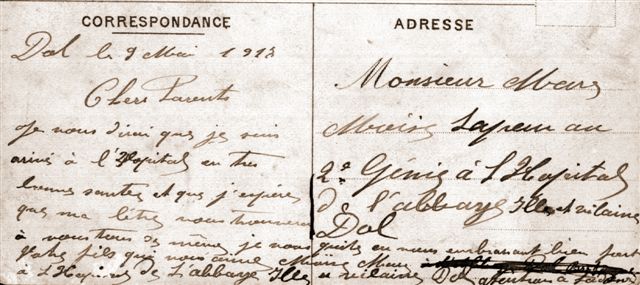 CORRESPONDANCE
Dol le 9 Mai 1918
Chers Parents
Je vous dirai que je suis
arivé à l'Hopital en tres
bonne santée et que j'espère
que ma lètre vous trouvera
à vous tous de même je vous quite en vous embrasant bien fort
votre fils qui vous aime Moïse Mare
à L'Hopital de L'abbaye Ille et vilaine Dol attention à L'adresse
ADRESSE
Monsieur Mare
Moïse Sapeur au
2e Génie à L'Hopital
de l'abbaye Ille et vilaine
Dol